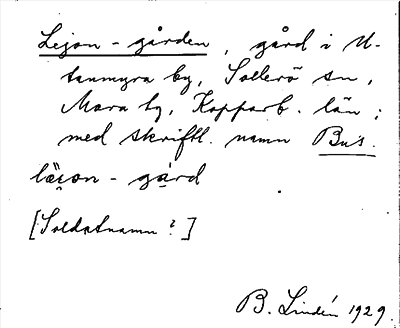 Lejon-gården, gård i U-
tanmyra by, Sollerö sn,
Mora tg, Kopparb. län;
med skriftl. namn Bus.
läjon-gård
[Soldatnamn?]
B. Lindén 1929.